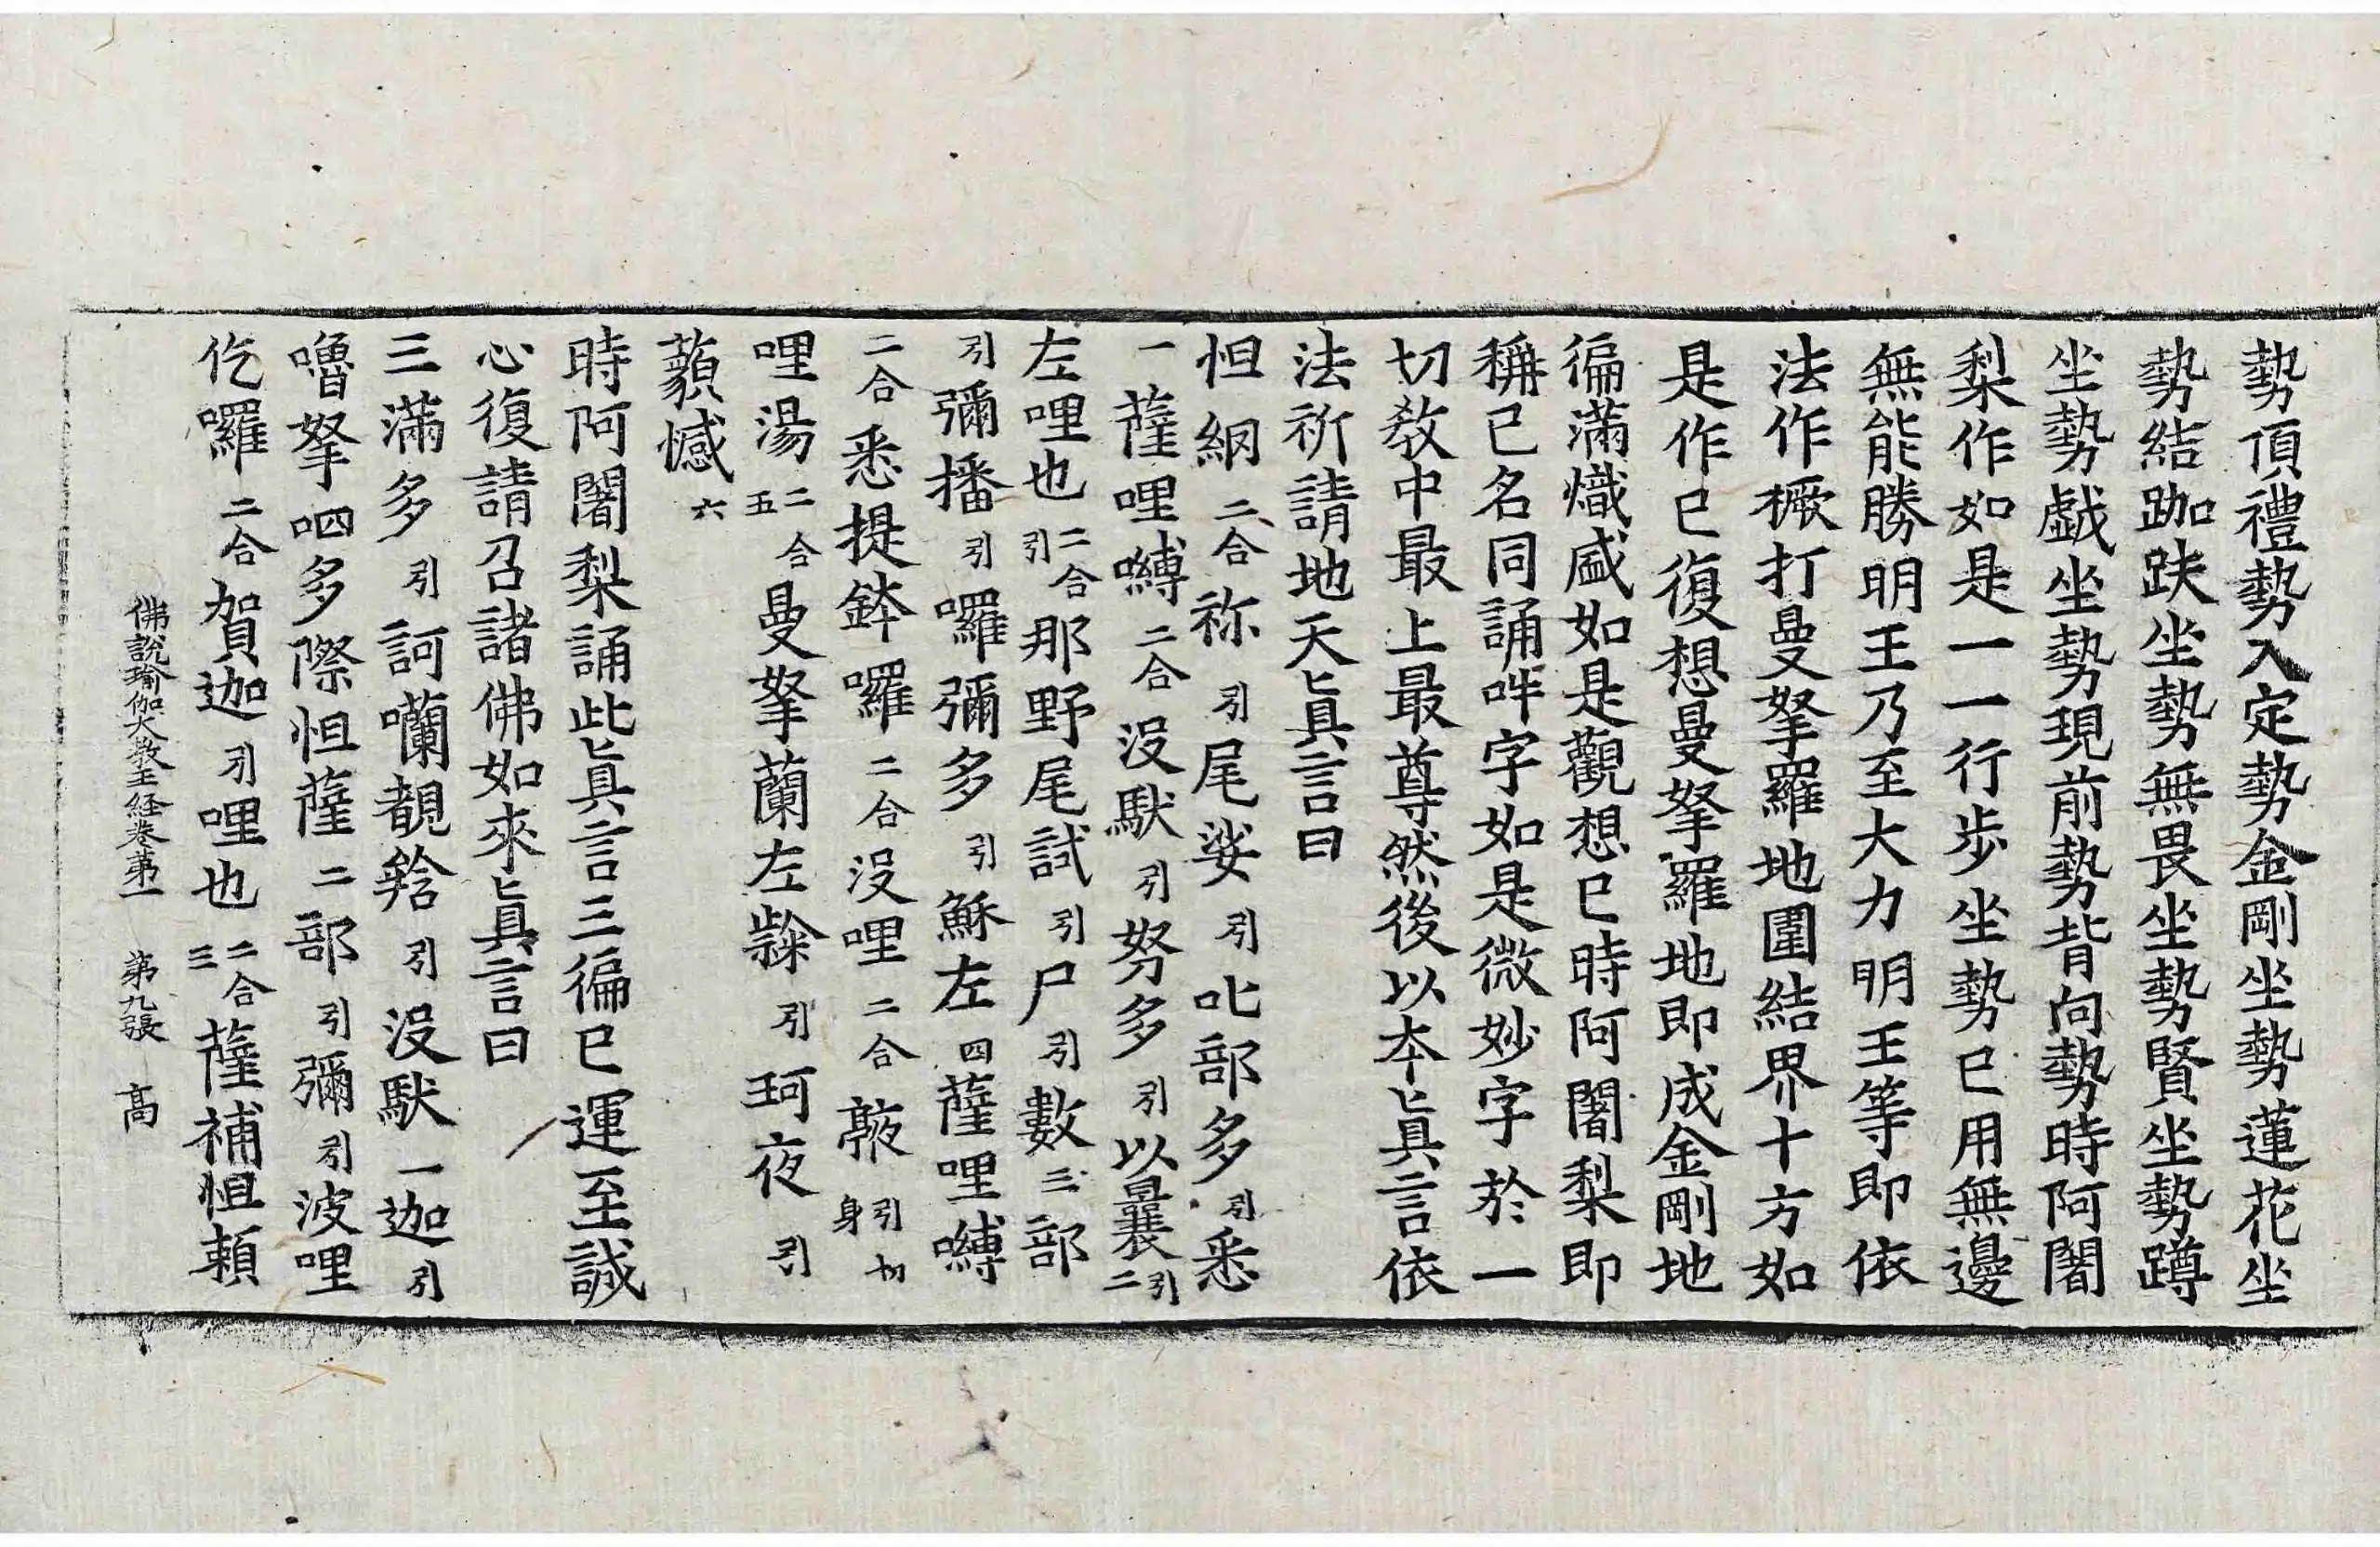 勢頂禮勢入定勢金剛坐勢蓮花坐
勢結跏趺坐勢無畏坐勢賢坐勢蹲
坐勢戱坐勢現前勢背向勢時阿闍
梨作如是一一行步坐勢已用無邊
無能勝明王乃至大力明王等即依
法作橛打曼拏羅地圍結界十方如
是作已復想曼拏羅地即成金剛地
徧滿熾盛如是觀想已時阿闍梨即
稱已名同誦吽字如是微妙字於一
切教中最上最尊然後以本眞言依
法祈請地天眞言曰
怛網二合祢引尾娑引叱部多引悉
一薩哩嚩二合沒馱引努多引以曩引二
左哩也二合引那野尾試引尸引數三部
引彌播引囉彌多引穌左四薩哩嚩
二合悉提鉢囉二合沒哩二合引切身
哩湯二合五曼拏蘭左引珂夜引
藐憾六
時阿闍梨誦此眞言三徧已運至誠
心復請召諸佛如來眞言曰
三滿多引訶囒覩引沒馱一迦引
嚕拏呬多際怛薩二部引彌引波哩
仡囉二合賀迦引哩也二合三薩補怛頼
佛說瑜伽大教王経卷第一 第九張 髙